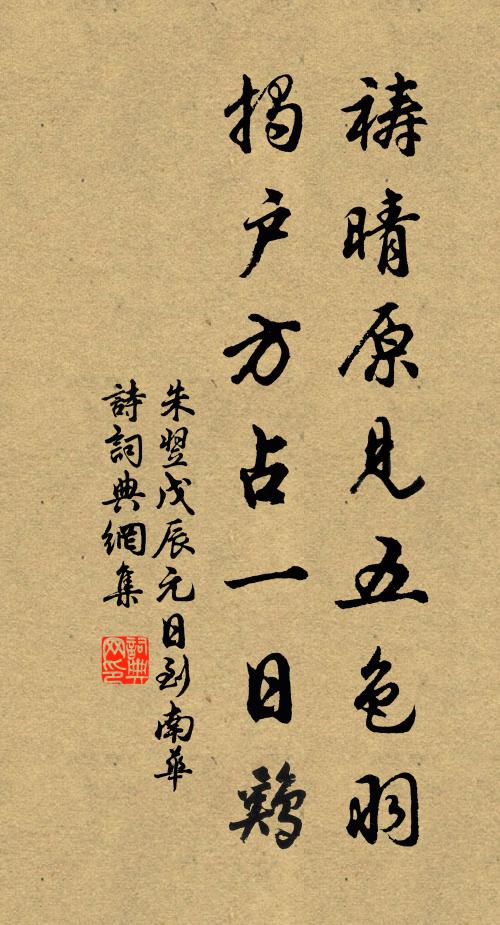 禱晴原見五色羽
揭户方占一日鷄
朱翌戊辰元日到南華
詩詞典網集
詞典网印